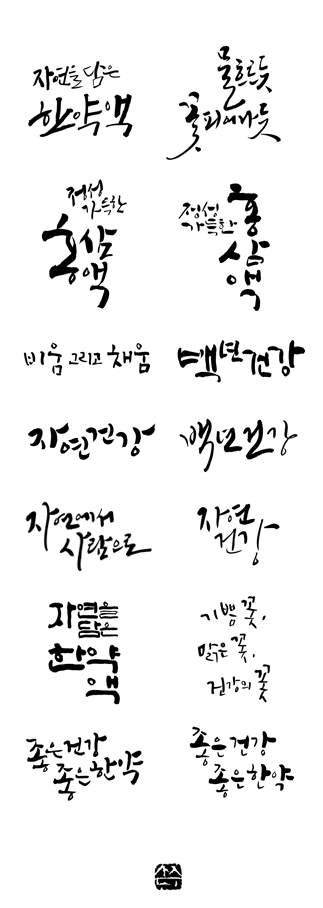 자연을 담은
한약액
물흐르듯
꽃피어나듯
정성
가득한
홍삼
액
정성
가득한
홍
삼
액
비움 그리고 채움
백년건강
자연건강
백년건강
자연에서
사람으로
자연
건강
자연을
담은
한약
액
기쁨꽃,
맑은꽃,
건강의꽃
좋은건강
좋은한약
좋은건강
좋은한약